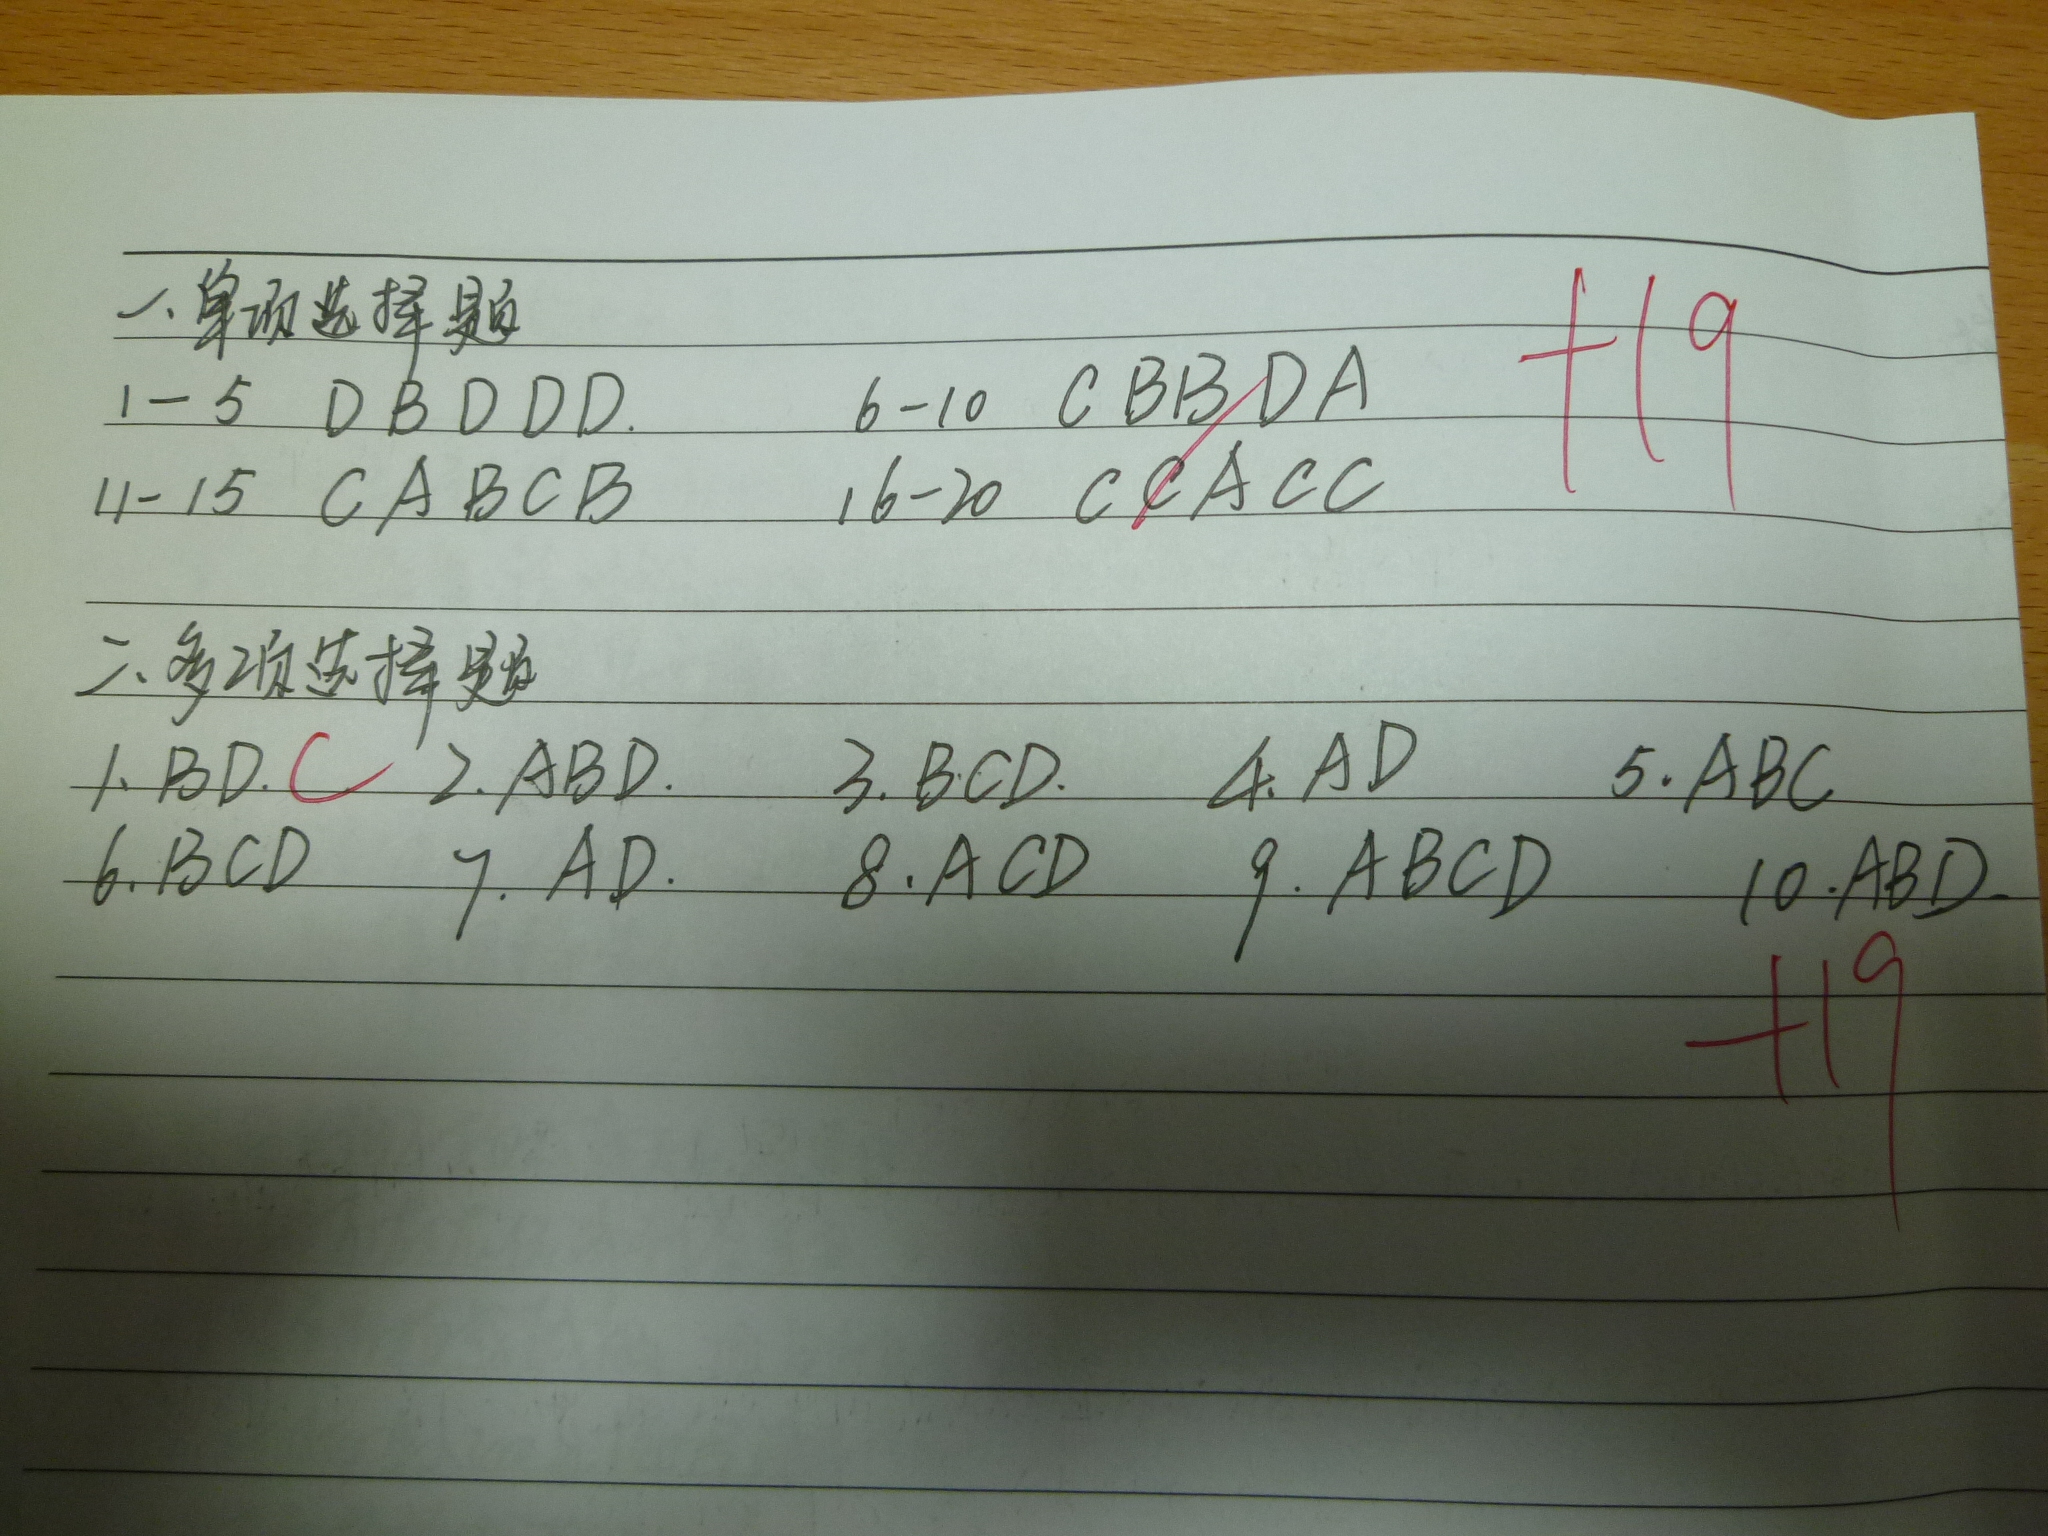 一、单项选择题
1-5 DBDDD. 6-10 CBBDA +19
11-15 CABCB 16-20 CCACC
二、多项选择题
1. BD. C 2. ABD. 3. BCD. 4. AD 5. ABC
6. BCD 7. AD. 8. ACD 9. ABCD 10. ABD.
+19